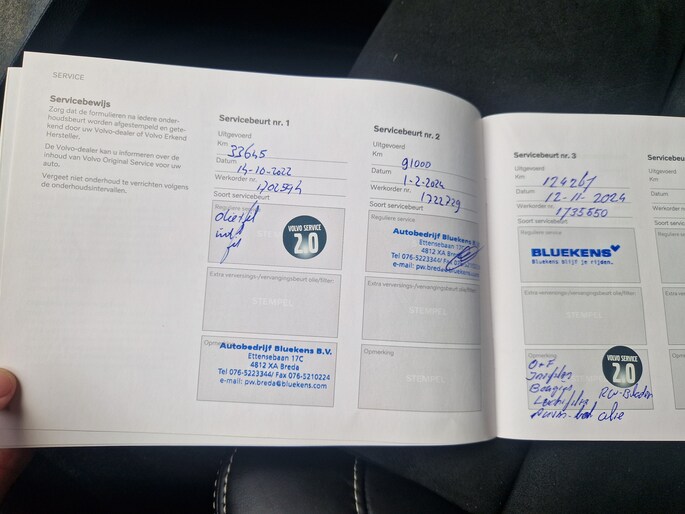 SERVICE
Servicebewijs
Zorg dat de formulieren na iedere onder-
houdsbeurt worden afgestempeld en gete-
kend door uw Volvo-dealer of Volvo Erkend
Hersteller.
De Volvo-dealer kan u informeren over de
inhoud van Volvo Original Service voor uw
auto.
Vergeet niet onderhoud te verrichten volgens
de onderhoudsintervallen.
Servicebeurt nr. 1
Uitgevoerd
Km 33645
Datum 14-10-2022
Werkorder nr.
Soort servicebeurt
Reguliere service
VOLVO SERVICE
2.0
Extra verversings-/vervangingsbeurt olie/filter
STEMPEL
Opmerking
Autobedrijf Bluekens B.V.
Ettensebaan 17C
4812 XA Breda
Tel 076-5223344/ Fax 076-5210224
e-mail: pw.breda@bluekens.com
Servicebeurt nr. 2
Uitgevoerd
Km 91000
Datum 1-2-2024
Werkorder nr. 1722729
Soort servicebeurt
Reguliere service
Autobedrijf Bluekens B.V.
Ettensebaan 17C
4812 XA Breda
Tel 076-5223344/ Fax
e-mail: pw.breda@bluekens.com
Extra verversings-/vervangingsbeurt olie/filter
STEMPEL
Opmerking
Servicebeurt nr. 3
Uitgevoerd
Km 124267
Datum 12-11-2024
Werkorder nr. 1735650
Soort servicebeurt
Reguliere service
BLUEKENS
Bluekens blijf je rijden.
Extra verversings-/vervangingsbeurt olie/filter
STEMPEL
Opmerking
VOLVO SERVICE
2.0
O+F
Servicebe
Uitgevoerd
Km
Datum
Werkorder n
Soort servic
Reguliere se
Extra ververs
Opmerking